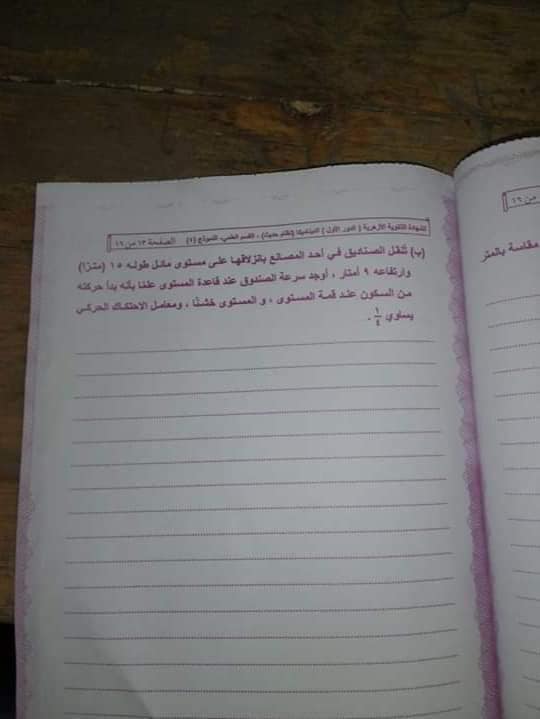 الشهادة الثانوية الأزهرية ( الدور الأول ) الديناميكا (نظام حديث) ، القسم العلمي، النموذج (٢) الصفحة ١٣ من ١٦
(ب) تُنقل الصناديق في أحد المصانع بانزلاقها على مستوى مائل طوله ١٥ (مترًا)
وارتفاعه ٩ أمتار ، أوجد سرعة الصندوق عند قاعدة المستوى علمًا بأنه بدأ حركته
من السكون عند قمة المستوى ، و المستوى خشنًا ، ومعامل الاحتكاك الحركي
يساوي ١/٤ .
من ١٦
مقاسة بالمتر